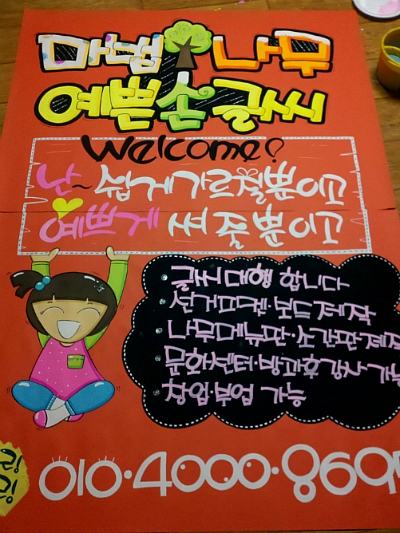 마법 나무
예쁜손글씨
Welcome!
난~ 쉽게 가르칠뿐이고
예쁘게 써 줄뿐이고
글씨 대행 합니다
선거피켓·보드제작
나무메뉴판·소간판제작
문화센터·방과후강사 가능
창업·부업 가능
010·4000·869